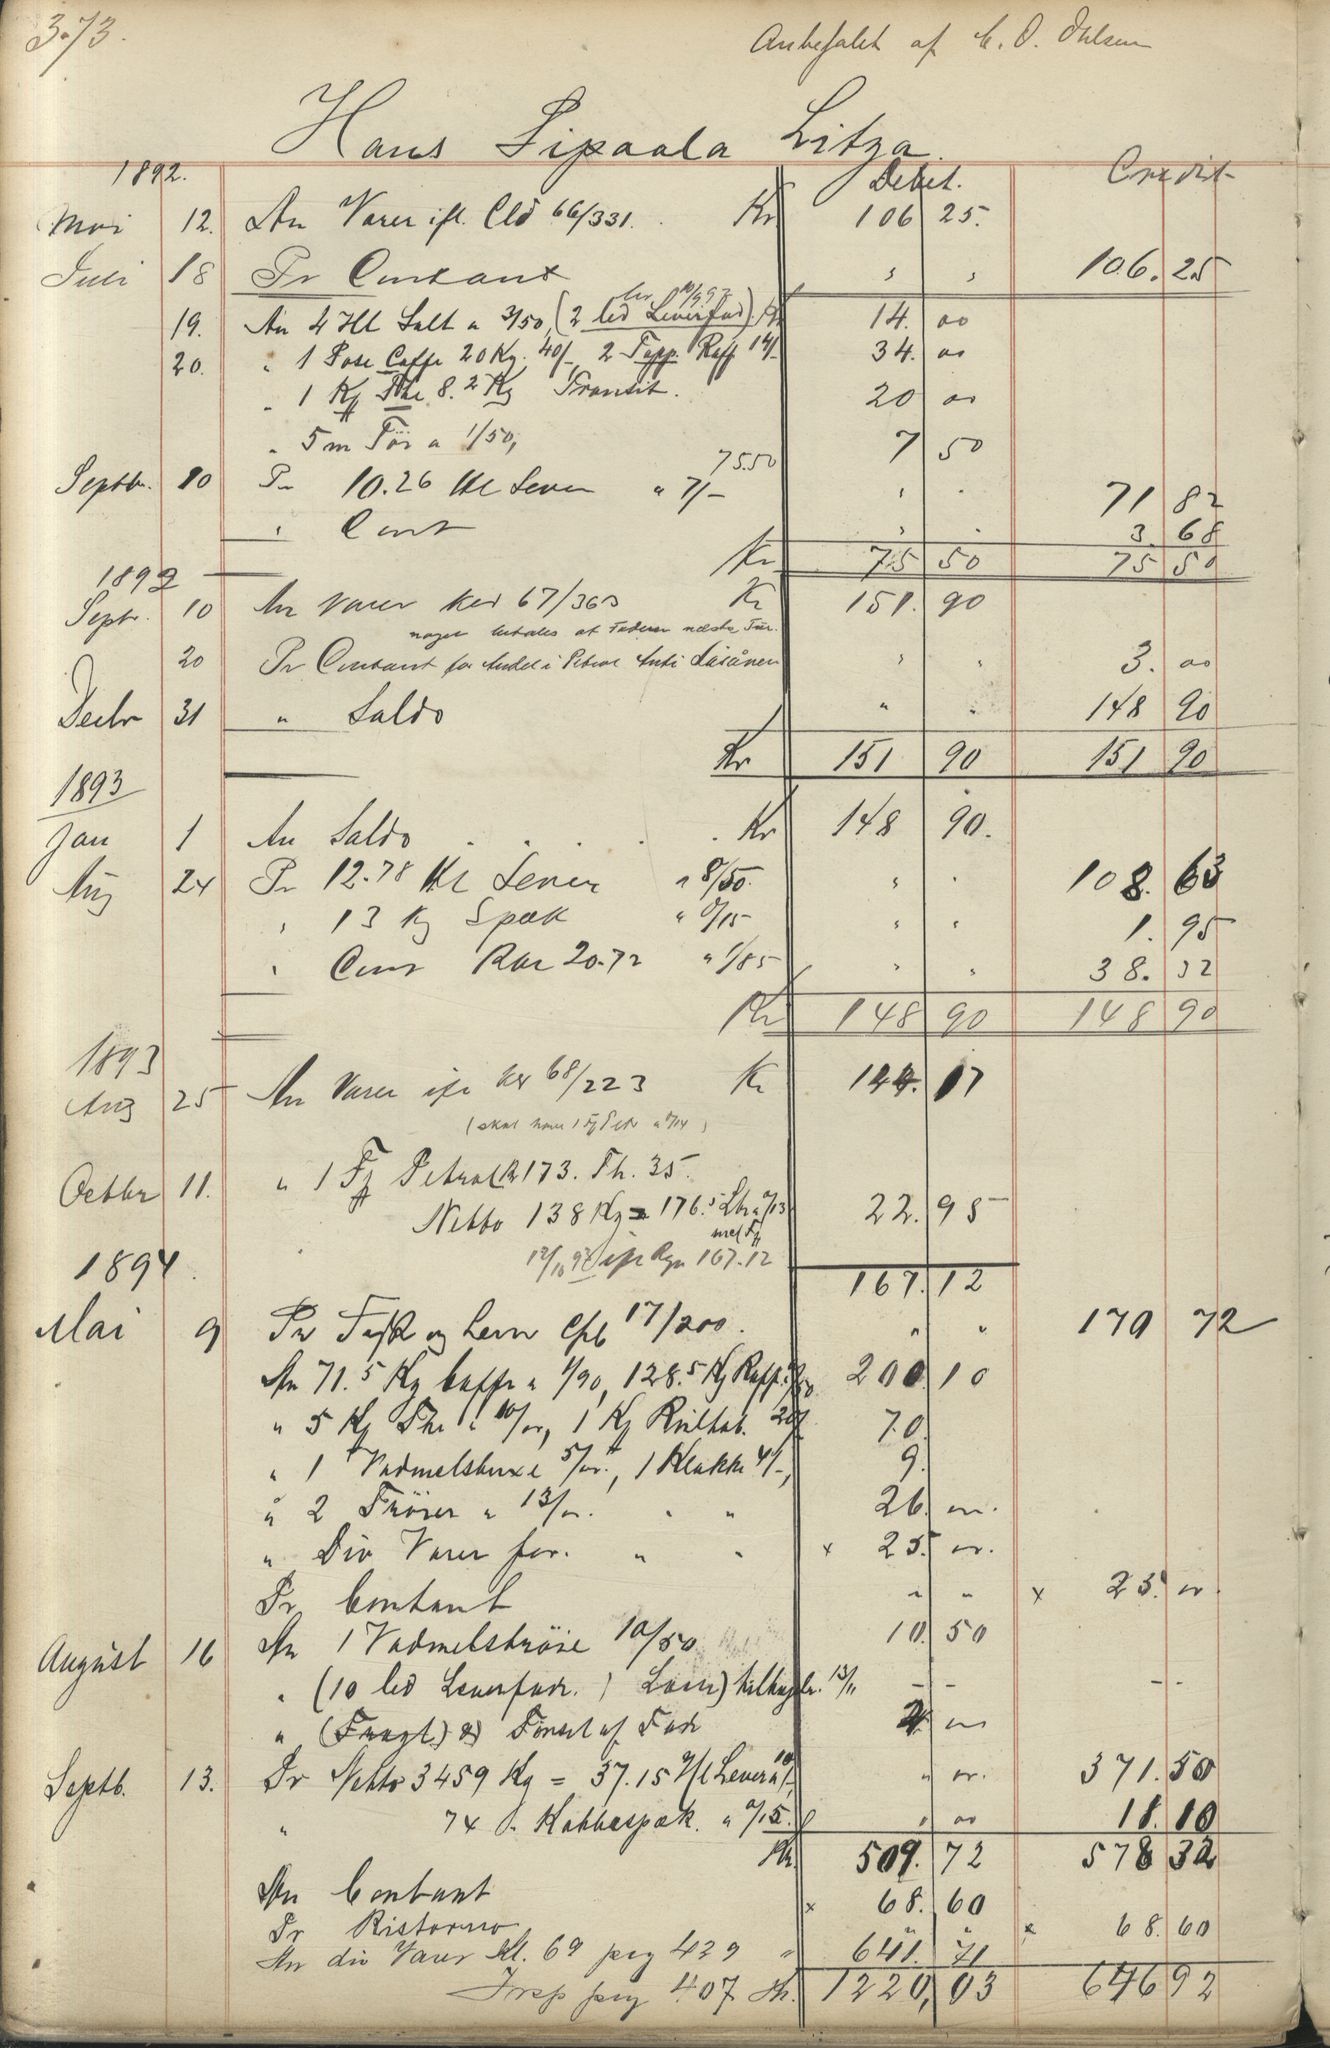 373.
Anbefalet af C. O. Ohlsen
Hans Sipaala Litza.
1892. Debet. Credit
Mai 12. An Varer ifl. Cld 66/331. Kr 106 25.
Juli 18 Pr Contant " " 106.25
19. An 4 Hl Salt a 3/50, (2 led Leverfad) Kr 14. 00
20. " 1 Pose Caffe 20 Kg. 40/-, 2 Topp. Raff 14/- 34. 00
" 1 Kg The 8.2 Kg Transit. 20 00
" 5 m Tör a 1/50, 7 50
75.50
Septbr. 10 Pr 10.26 Hl Lever a 7/- " " 71 82
" Cont " " 3. 68
Kr 75 50 75 50
1892
Septr. 10 An Varer Ked 67/363 Kr 151. 90
noget betales af Faderen næste Tur.
20 Pr Contant for Andel i Petrol Anti Säsänen " " 3. 00
Decbr 31 " Saldo " " 148 90
Kr 151 90 151 90
1893
Jan 1 An Saldo . . . . . Kr 148 90.
Aug 24 Pr 12.78 Hl Lever a 8/50. " " 108. 63
" 13 Kg Spæk a 0/15 " " 1. 95
" Cont Rbr 20.72 a 1/85 " " 38. 32
Kr 148 90 148 90
1893
Aug 25 An Varer ifr Kd 68/223 Kr 144. 17
Octbr 11. " 1 Fj Petrol B 173. Th. 35.
Netto 138 Kg = 176.5 Ltr a 0/13 22. 95
med Fj
12/10 93 ifr Rgn 167.12
167.12
1894.
Mai 9 Pr Fisk og Lever Cpb 17/200. " " 179 72
An 71.5 Kg Caffe a 1/90, 128.5 Kg Raff. 200.10
" 5 Kg The a 10/00, 1 Kg Rultob. 20/ 70.
" 1 Vadmelsbuxe 5/00., 1 Klokke 4/-, 9.
" 2 Tröier a 13/00. " " 26. 00.
" Div Varer for. " " x 25. 00.
Pr Contant " " x 25. 00
August 16 An 1 Vadmelströie 10/50 10. 50
" (10 led Leverfade. ) Laan) tilbagelev. 13/11 - - - -
" (Fragt) af Tönset af Fade 2 00
Septb. 13. Pr Netto 3459 Kg = 37.15 H/l Lever a 10/- " 00. 371.50
" 74 " Kobbespæk. a 0/15. " 00 18. 10
Kr. 509. 72 578 32
An Contant x 68. 60
Pr Ristorno " " x 68. 60
An div Varer Kl. 69 pag 439 " 641. 71
Trsp pag 407 Kr. 1220, 03 646 92